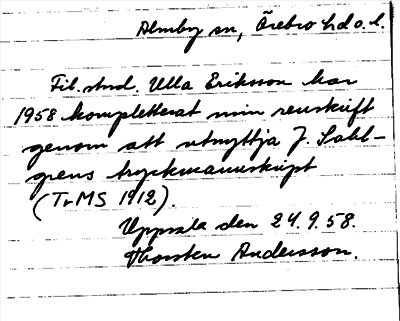 Almby sn, Örebro hd o. l.
Fil. stud. Ulla Eriksson har
1958 kompletterat min renskrift
genom att utnyttja J. Sahl-
grens tryckmanuskript
(TrMS 1912).
Uppsala den 24.9.58.
Thorsten Andersson.